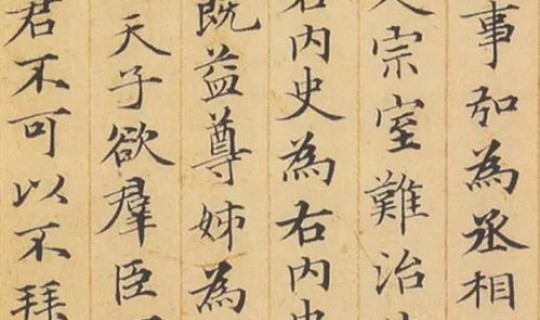 事弘為丞相
人宗室難治
右內史為右內史
既益尊姊為
天子欲羣臣
君不可以不拜